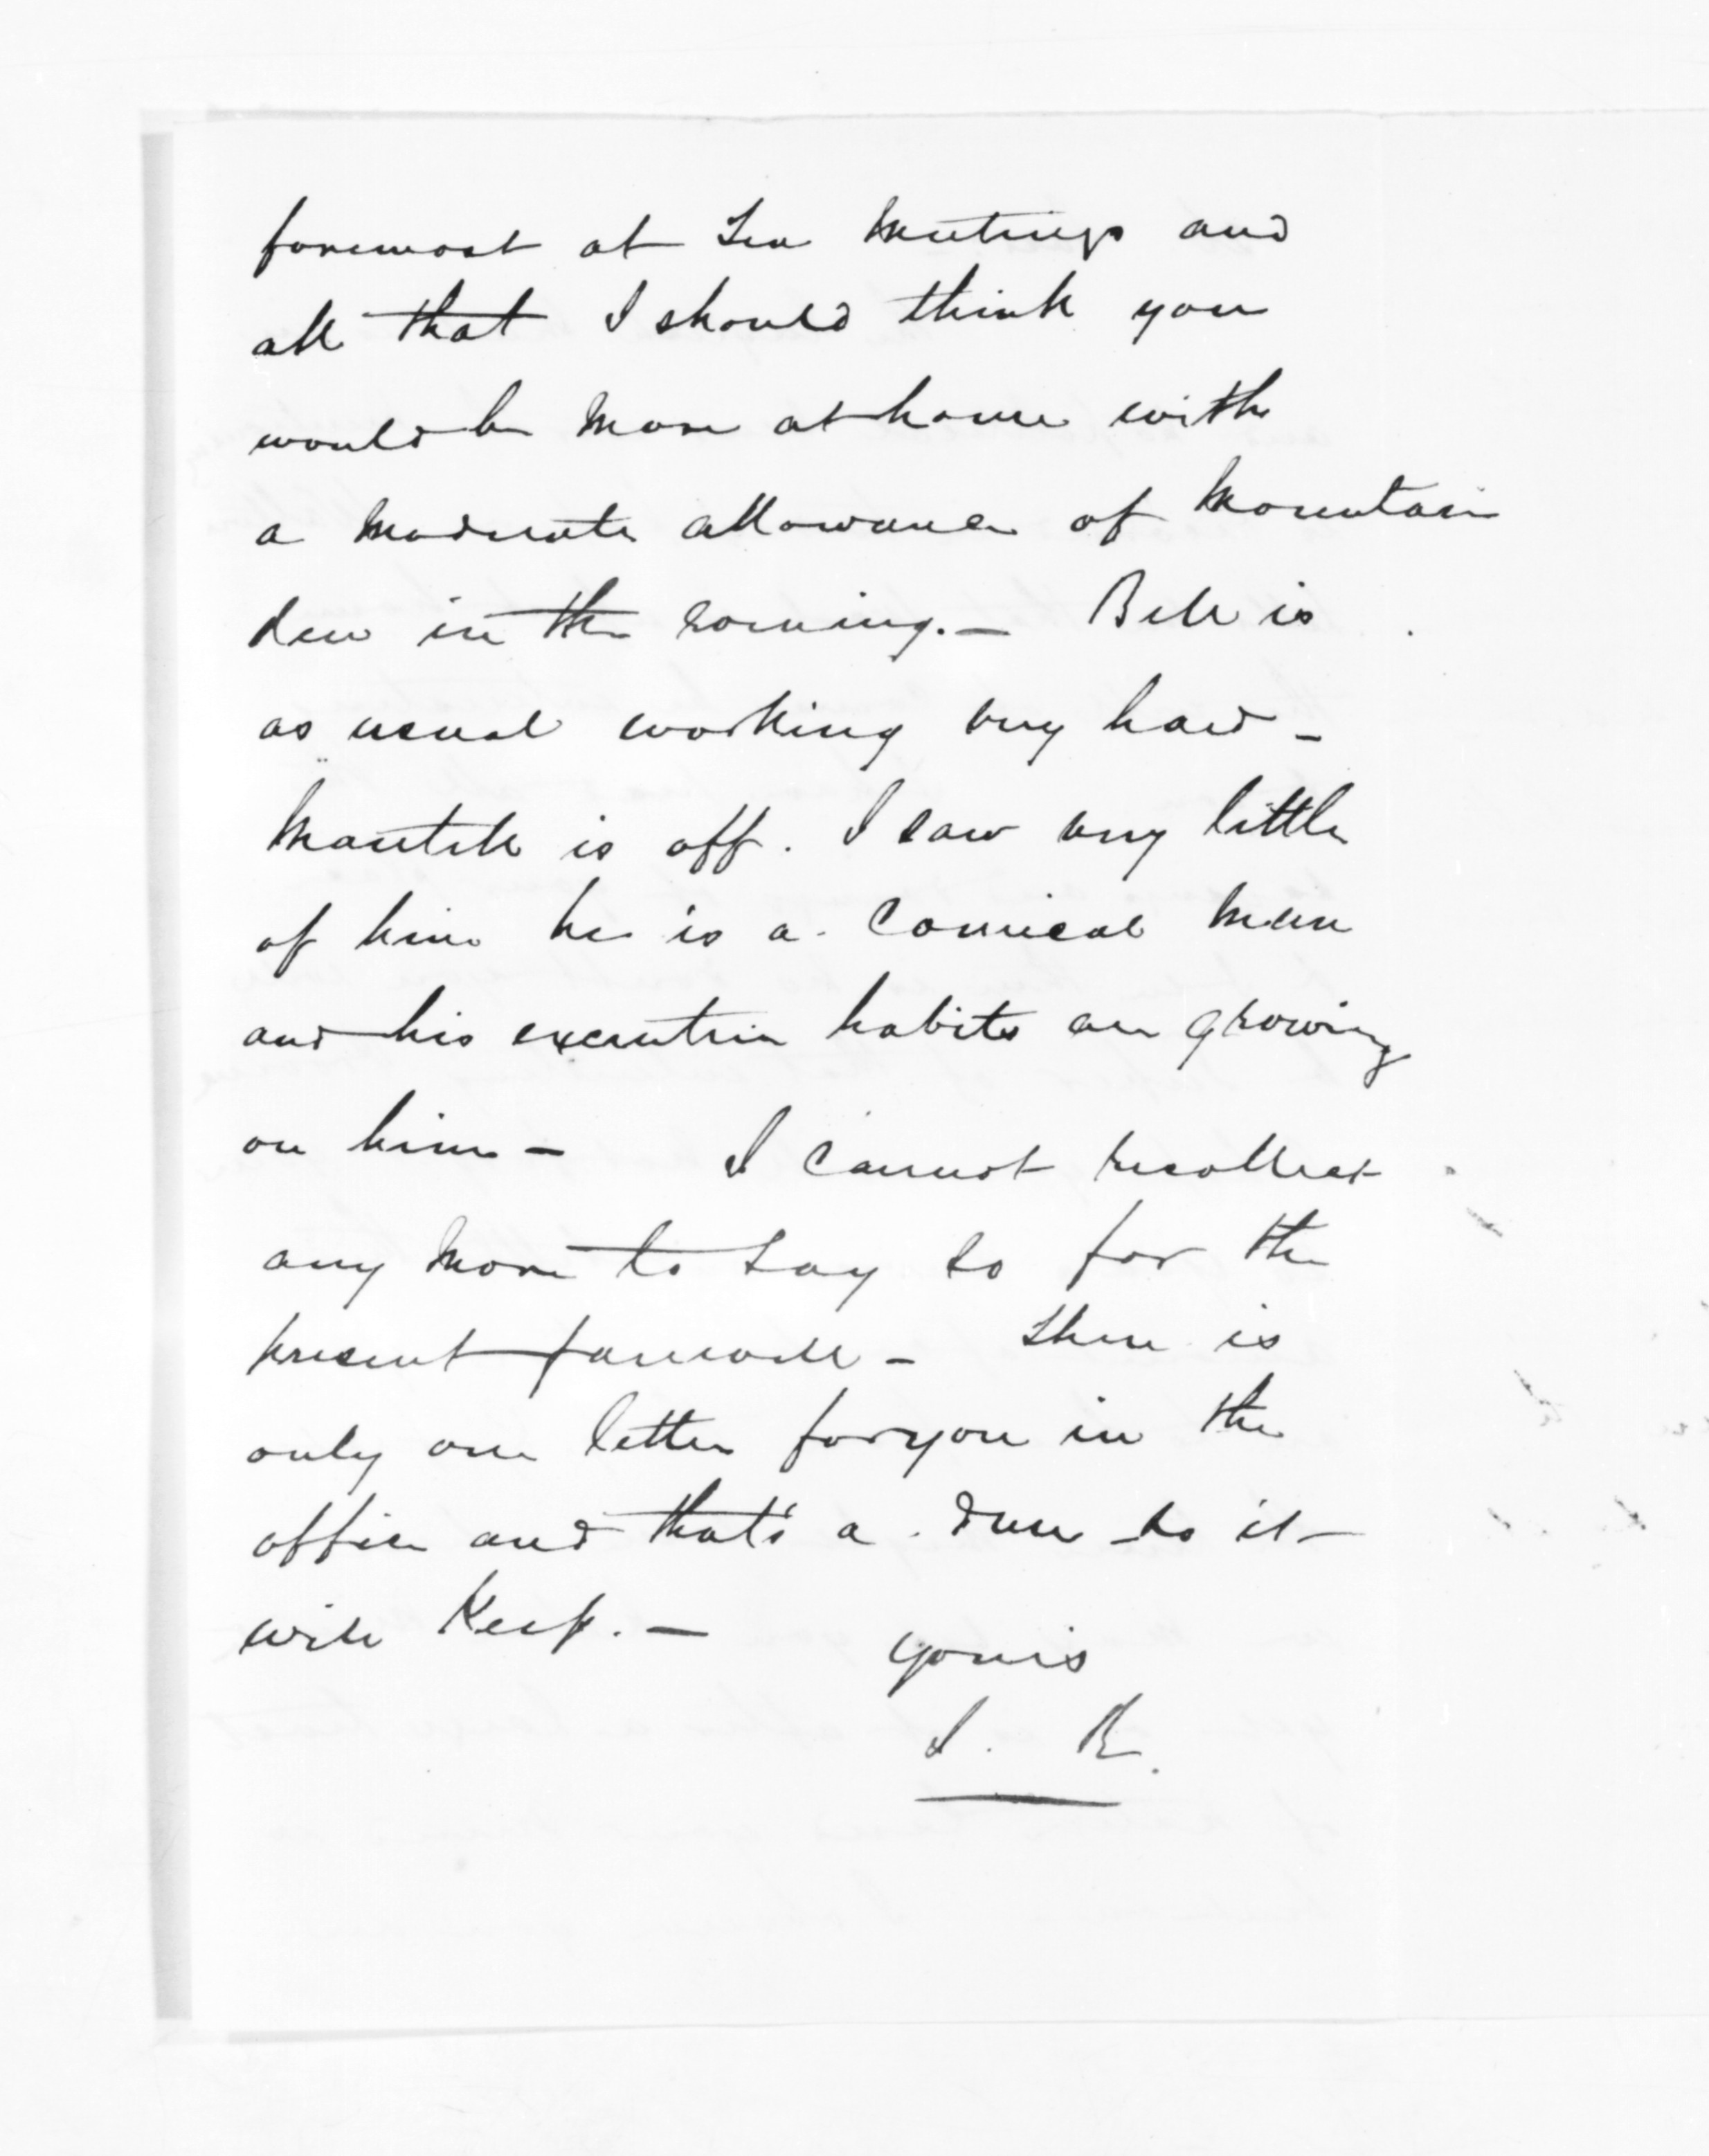 foremost at Tea Meetings and
all that I should think you
would be more at home with
a moderate allowance of Mountain
dew in the evening. — Bell is
as usual working very hard —
Mantell is off. I saw very little
of him he is a comical man
and his excentric habits are growing
on him — I cannot recollect
any more to say so for the
present farewell — There is
only one letter for you in the
office and that's a dun so it
will keep. —
Yours
J. R.